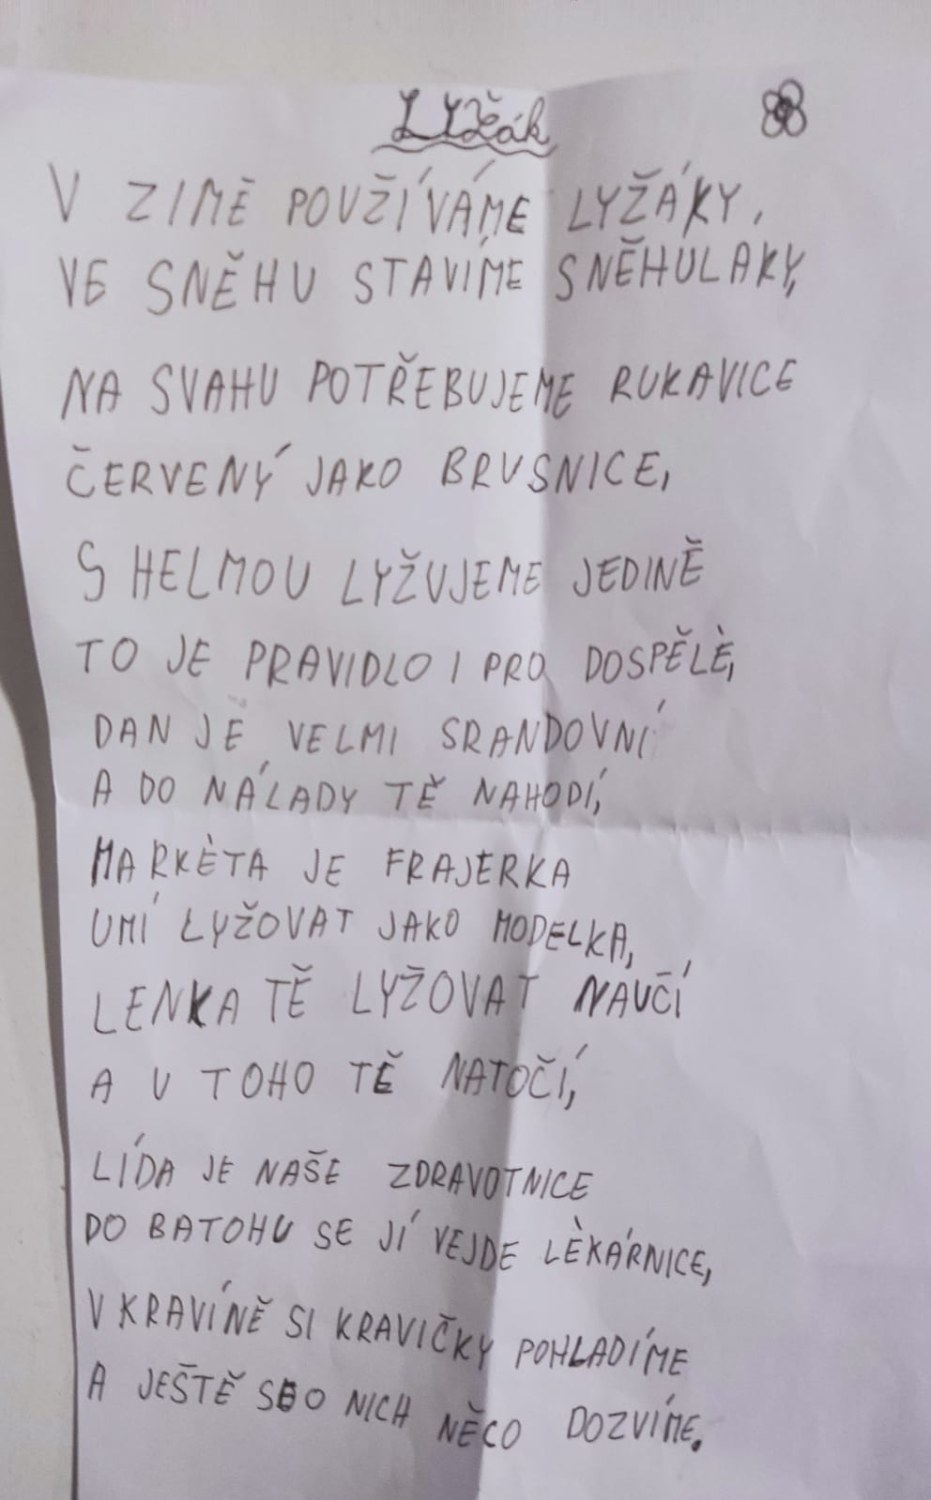 LYŽák
V ZIMĚ POUŽÍVÁME LYŽÁKY,
VE SNĚHU STAVÍME SNĚHULAKY,
NA SVAHU POTŘEBUJEME RUKAVICE
ČERVENÝ JAKO BRUSNICE,
S HELMOU LYŽUJEME JEDINĚ
TO JE PRAVIDLO I PRO DOSPĚLÈ,
DAN JE VELMI SRANDOVNÍ
A DO NÁLADY TĚ NAHODÍ,
MARKÈTA JE FRAJERKA
UMÍ LYŽOVAT JAKO MODELKA,
LENKA TĚ LYŽOVAT NAUČÍ
A U TOHO TĚ NATOČÍ,
LÍDA JE NAŠE ZDRAVOTNICE
DO BATOHU SE JÍ VEJDE LÈKÁRNICE,
V KRAVÍNĚ SI KRAVIČKY POHLADÍME
A JEŠTĚ SE O NICH NĚCO DOZVÍME.